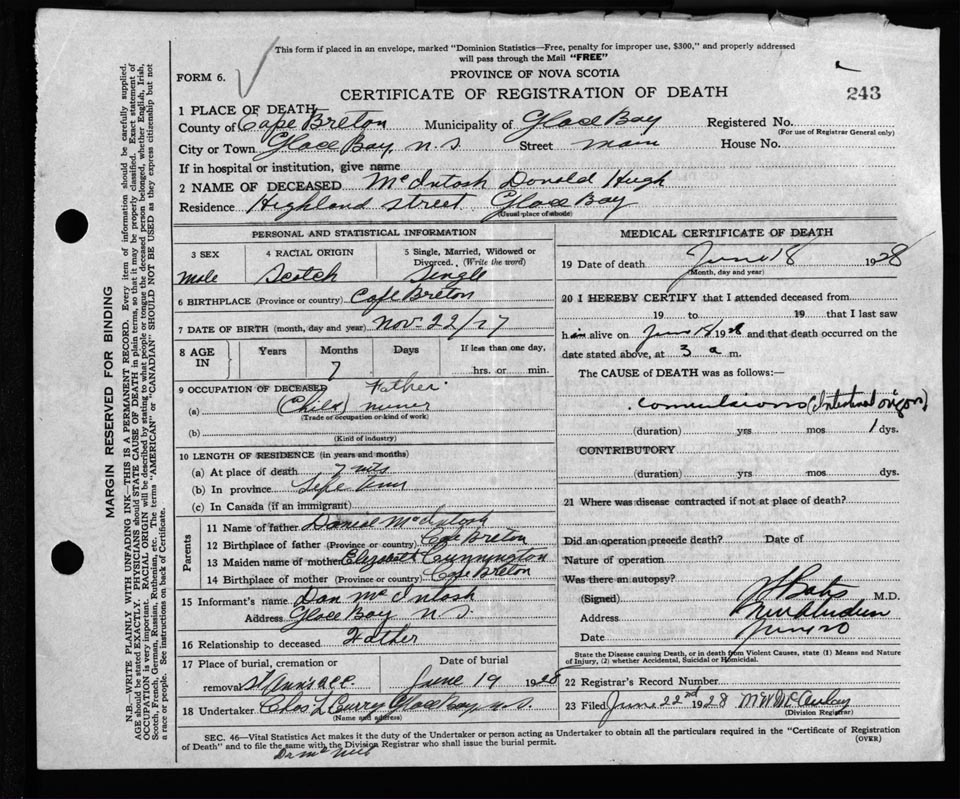 This form if placed in an envelope, marked "Dominion Statistics—Free, penalty for improper use, $300," and properly addressed
will pass through the Mail "FREE"
FORM 6.
PROVINCE OF NOVA SCOTIA
CERTIFICATE OF REGISTRATION OF DEATH
243
1 PLACE OF DEATH
County of Cape Breton Municipality of Glace Bay Registered No.
(For use of Registrar General only)
City or Town Glace Bay, N.S. Street Main House No.
If in hospital or institution, give name
2 NAME OF DECEASED McIntosh Donald Hugh
Residence Highland Street Glace Bay
(Usual place of abode)
PERSONAL AND STATISTICAL INFORMATION
3 SEX 4 RACIAL ORIGIN 5 Single, Married, Widowed or
Divorced. (Write the word)
Male Scotch Single
6 BIRTHPLACE (Province or country) Cape Breton
7 DATE OF BIRTH (month, day and year) Nov. 22/27
8 AGE IN Years Months Days If less than one day,
7 hrs. or min.
9 OCCUPATION OF DECEASED Father
(a) (Child) miner
(Trade or occupation or kind of work)
(b)
(Kind of industry)
10 LENGTH OF RESIDENCE (in years and months)
(a) At place of death 7 mts
(b) In province Life time
(c) In Canada (if an immigrant)
Parents
11 Name of father Daniel McIntosh
12 Birthplace of father (Province or country) Cape Breton
13 Maiden name of mother Elizabeth Cunnington
14 Birthplace of mother (Province or country) Cape Breton
15 Informant's name Dan McIntosh
Address Glace Bay N.S.
16 Relationship to deceased Father
17 Place of burial, cremation or Date of burial
removal St Anns GCC June 19 1928
18 Undertaker Chas L Curry Glace Bay, N.S.
(Name and address)
MEDICAL CERTIFICATE OF DEATH
19 Date of death June 18 1928
(Month, day and year)
20 I HEREBY CERTIFY that I attended deceased from
19 to 19 that I last saw
him alive on June 18/1928 and that death occurred on the
date stated above, at 3 a m.
The CAUSE of DEATH was as follows:—
convulsions (Intestinal origin)
(duration) yrs mos 1 dys.
CONTRIBUTORY
(duration) yrs mos dys.
21 Where was disease contracted if not at place of death?
Did an operation precede death? Date of
Nature of operation
Was there an autopsy?
(Signed) M.D.
Address New Aberdeen
Date June 20
State the Disease causing Death, or in death from Violent Causes, state (1) Means and Nature
of Injury, (2) whether Accidental, Suicidal or Homicidal.
22 Registrar's Record Number
23 Filed June 22nd 1928
(Division Registrar)
SEC. 46—Vital Statistics Act makes it the duty of the Undertaker or person acting as Undertaker to obtain all the particulars required in the "Certificate of Registration
of Death" and to file the same with the Division Registrar who shall issue the burial permit.
(OVER)
Dr McNeil
MARGIN RESERVED FOR BINDING
N.B.—WRITE PLAINLY WITH UNFADING INK—THIS IS A PERMANENT RECORD. Every item of information should be carefully supplied.
AGE should be stated EXACTLY. PHYSICIANS should STATE CAUSE OF DEATH in plain terms, so that it may be properly classified. Exact statement of
OCCUPATION is very important. RACIAL ORIGIN will be described by stating to what people or tongue the deceased person belonged, whether English, Irish,
Scotch, French, German, Russian, Ruthenian, etc. The terms "AMERICAN" or "CANADIAN" SHOULD NOT BE USED as they express citizenship but not
a race or people. See instructions on back of Certificate.